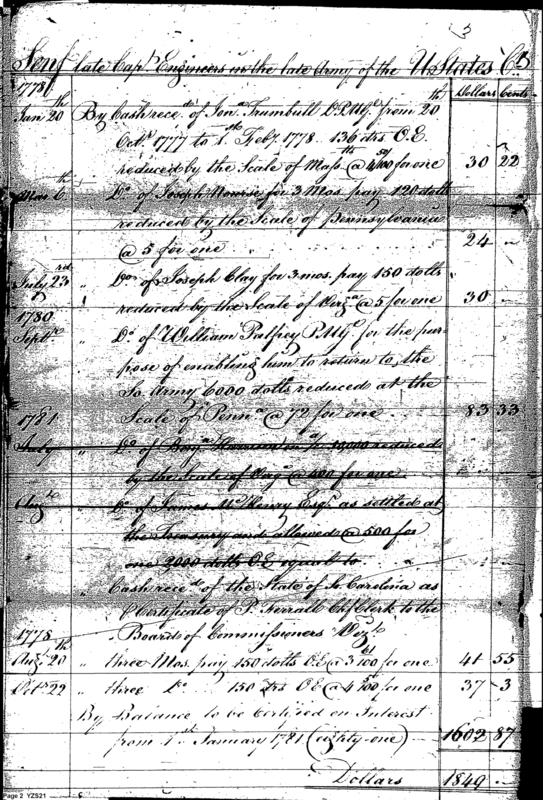 3
Senf late Capt Engineers in the late Army of the U States Cr
1778
Dollars Cents
Jan 20th By Cash recd of Jona Trumbull D.P.M.G. from 20th
Octr 1777 to 1st Feby 1778 136 drs O.E.
reduced by the Scale of Massts @ 4 50/100 for one 30 22
Mar 6th Do of Joseph Nourse for 3 Mos pay 120 dolls
reduced by the Scale of Pennsylvania
@ 5 for one 24 "
July 23rd " Do of Joseph Clay for 3 mos. pay 150 dolls
reduced by the Scale of Virga @ 5 for one 30 "
1780
Septr " Do of William Palfrey P.M.G. for the pur
pose of enabling him to return to the
So. Army 6000 dolls reduced at the
Scale of Penna @ 72 for one 83 33
1781
July " Do of Harrison 10,000 reduced
by the Scale of Virga @ for one
Augt Do of James McHenry Esqr as settled at
the Treasury and allowed @ 500 for
one 2000 dolls O.E. equal to
" Cash recd of the State of So Carolina as
Certificate of P. Ferrall Chf Clerk to the
Board of Commissioners Vizt
1778
Augt 20th " three Mos. pay 150 dolls O.E @ 3 61/100 for one 41 55
Octr 22 " three Do 150 drs O.E @ 4 /100 for one 37 3
By Balance to be Certified on Interest
from 1st January 1781 (eighty-one) 1602 87
Dollars 1849 "
Page 2 YZS21